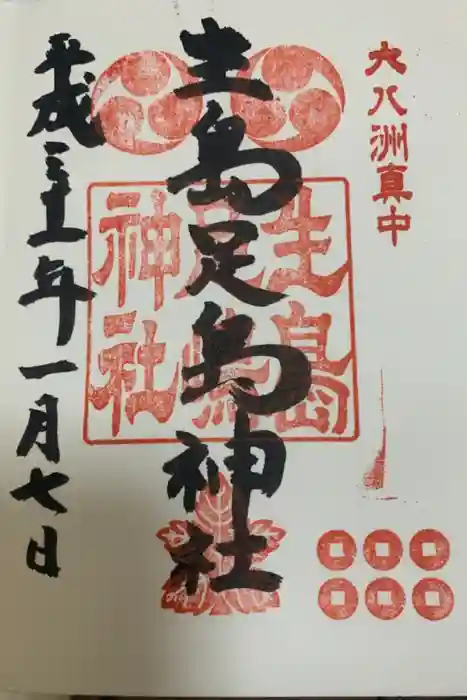 大八洲真中
生島足島神社
生島
足島
神社
平成三十一年一月七日